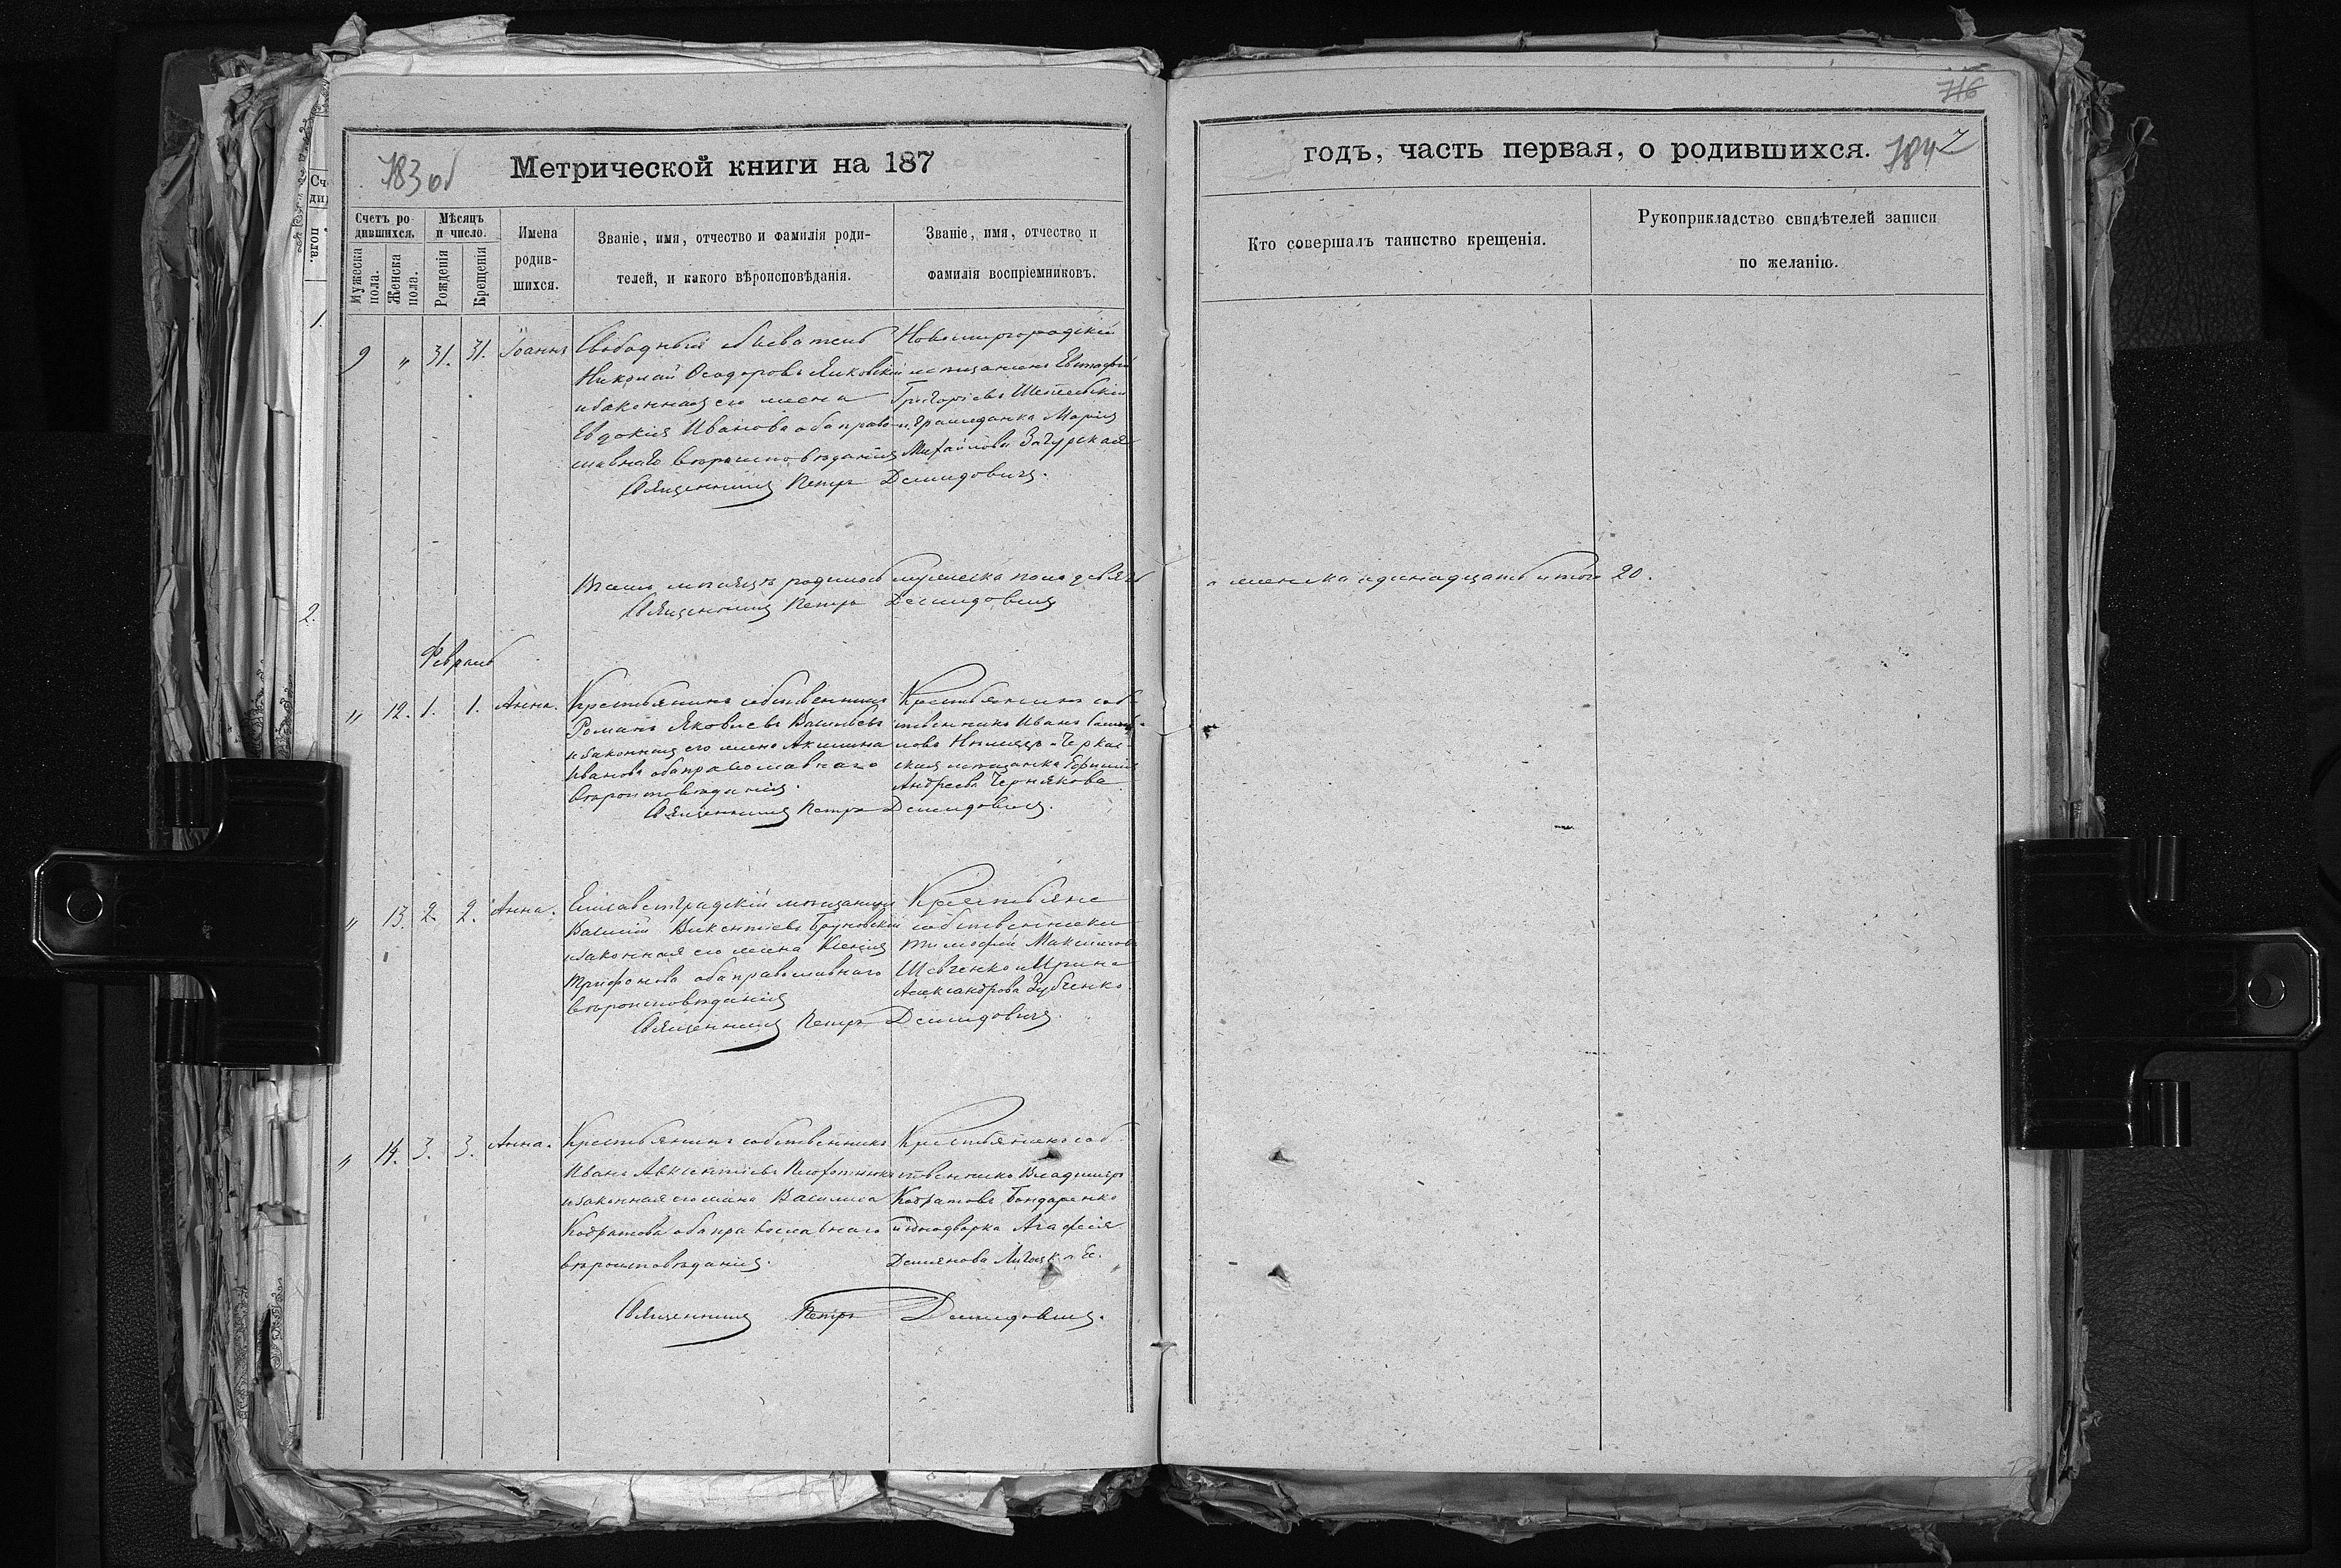 183 об
Метрической книги на 187
Счетъ ро-
дившихся.
Мѣсяцъ
и число.
Мужеска
пола.
Женска
пола.
Рожденія
Крещенія
Имена
родив-
шихся.
Званіе, имя, отчество и фамилія роди-
телей, и какого вѣроисповѣданія.
Званіе, имя, отчество и
фамилія воспріемниковъ.
9 " 31. 31. Іоаннъ
Свободный обыватель
Николай Ѳеодоровъ
и законная его жена
Евдокія Ивановна оба право-
славнаго вѣроисповѣданія
Новомиргородскій
мѣщанинъ Евстафій
Григорьевъ
и гражданка Марія
Михайлова Загурская
Священникъ Петръ Демидовичъ.
Всего мѣсяцѣ родилось мужеска пола девять
Священникъ Петръ Демидовичъ
Февраль
" 12. 1. 1. Анна.
Крестьянинъ собственникъ
Романъ Яковлевъ Васильевъ
и законная его жена Акилина
Иванова оба православнаго
вѣроисповѣданія.
Крестьянинъ соб-
ственникъ Иванъ
мѣщанка
Андреева Чернякова
Священникъ Петръ Демидовичъ.
" 13. 2. 2. Анна.
Елисаветградскій мѣщанинъ
Василій Викентіевъ
и законная его жена Ксенія
Трифонова оба православнаго
вѣроисповѣданія
Крестьяне
собственники
Тимофей Максимовъ
Шевченко и Ирина
Александрова Зубченко
Священникъ Петръ Демидовичъ.
" 14. 3. 3. Анна.
Крестьянинъ собственникъ
Иванъ Авксентіевъ
и законная его жена Василиса
Кодратова оба православнаго
вѣроисповѣданія.
Крестьянинъ соб-
ственникъ Владимиръ
Кодратовъ Бондаренко
и однодворка Агафія
Демянова
Священникъ Петръ Демидовичъ.
716
годъ, часть первая, о родившихся.
784
Кто совершалъ таинство крещенія.
Рукоприкладство свидѣтелей записи
по желанію.
а женска одинадцать итого 20.